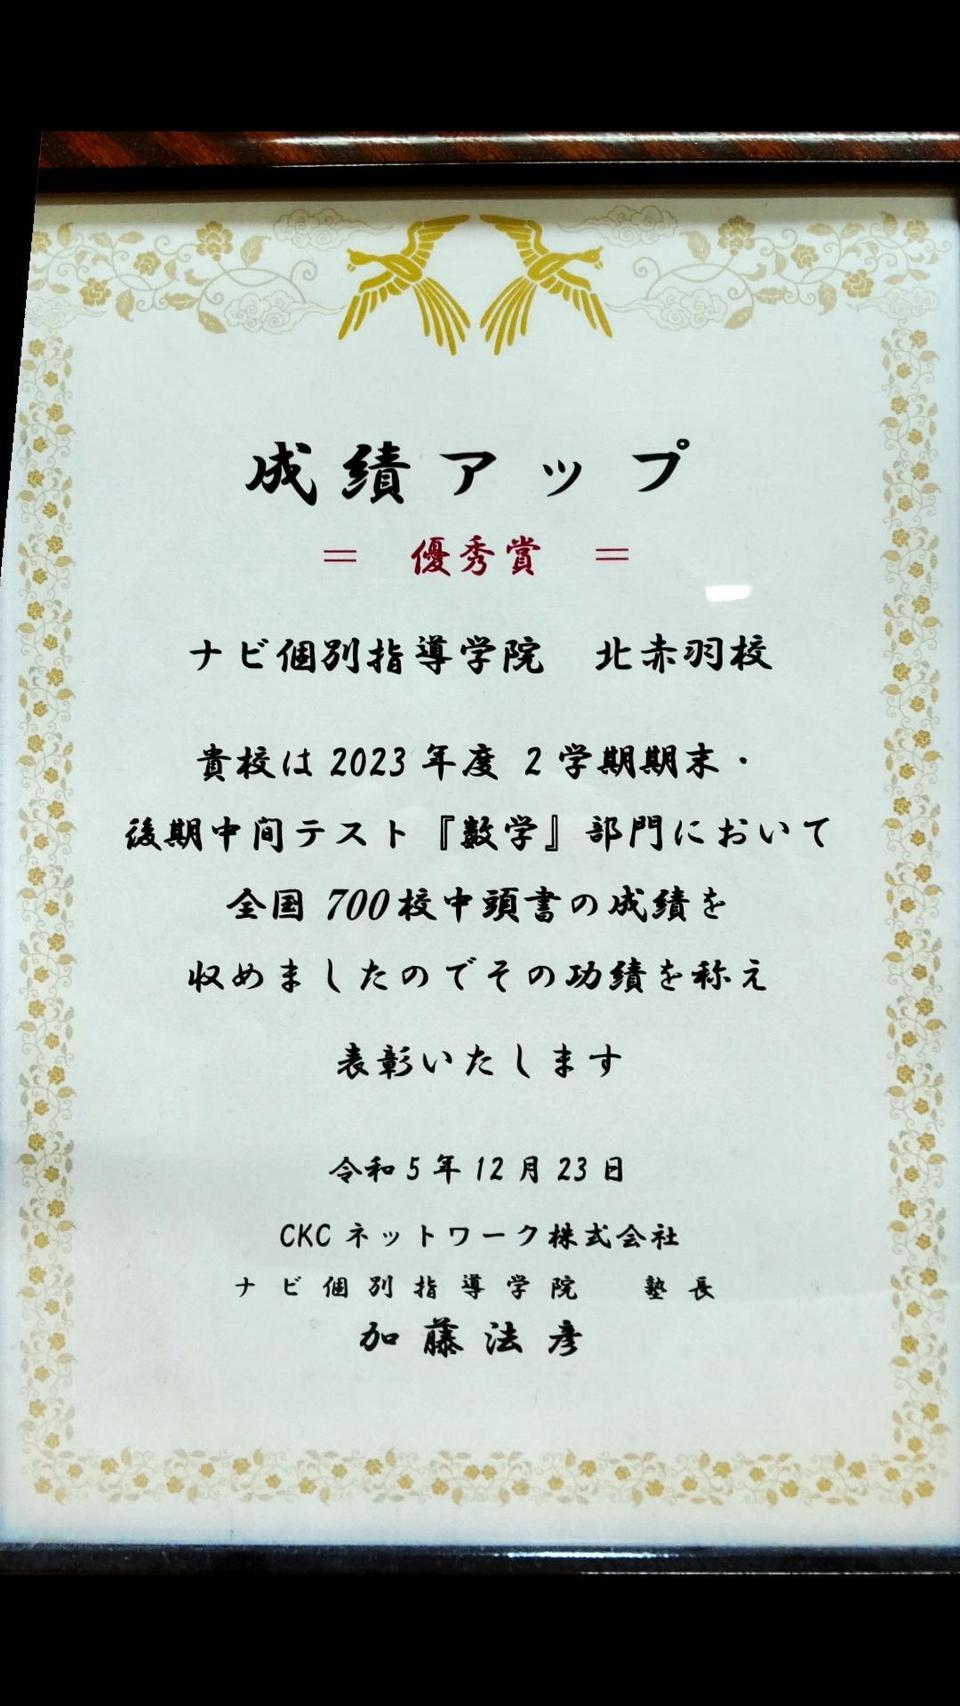 成績アップ
＝ 優秀賞 ＝
ナビ個別指導学院 北赤羽校
貴校は2023年度 2学期期末・
後期中間テスト『数学』部門において
全国700校中頭書の成績を
収めましたのでその功績を称え
表彰いたします
令和5年12月23日
CKCネットワーク株式会社
ナビ個別指導学院 塾長
加藤法彦